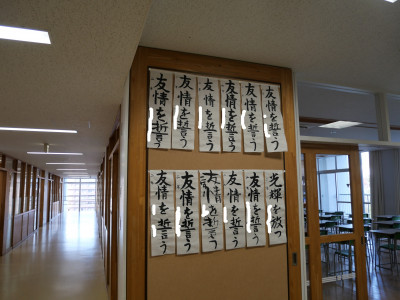 友情を誓う
友情を誓う
友情を誓う
友情を誓う
友情を誓う
友情を誓う
友情を誓う
友情を誓う
友情を誓う
友情を誓う
光輝を放つ